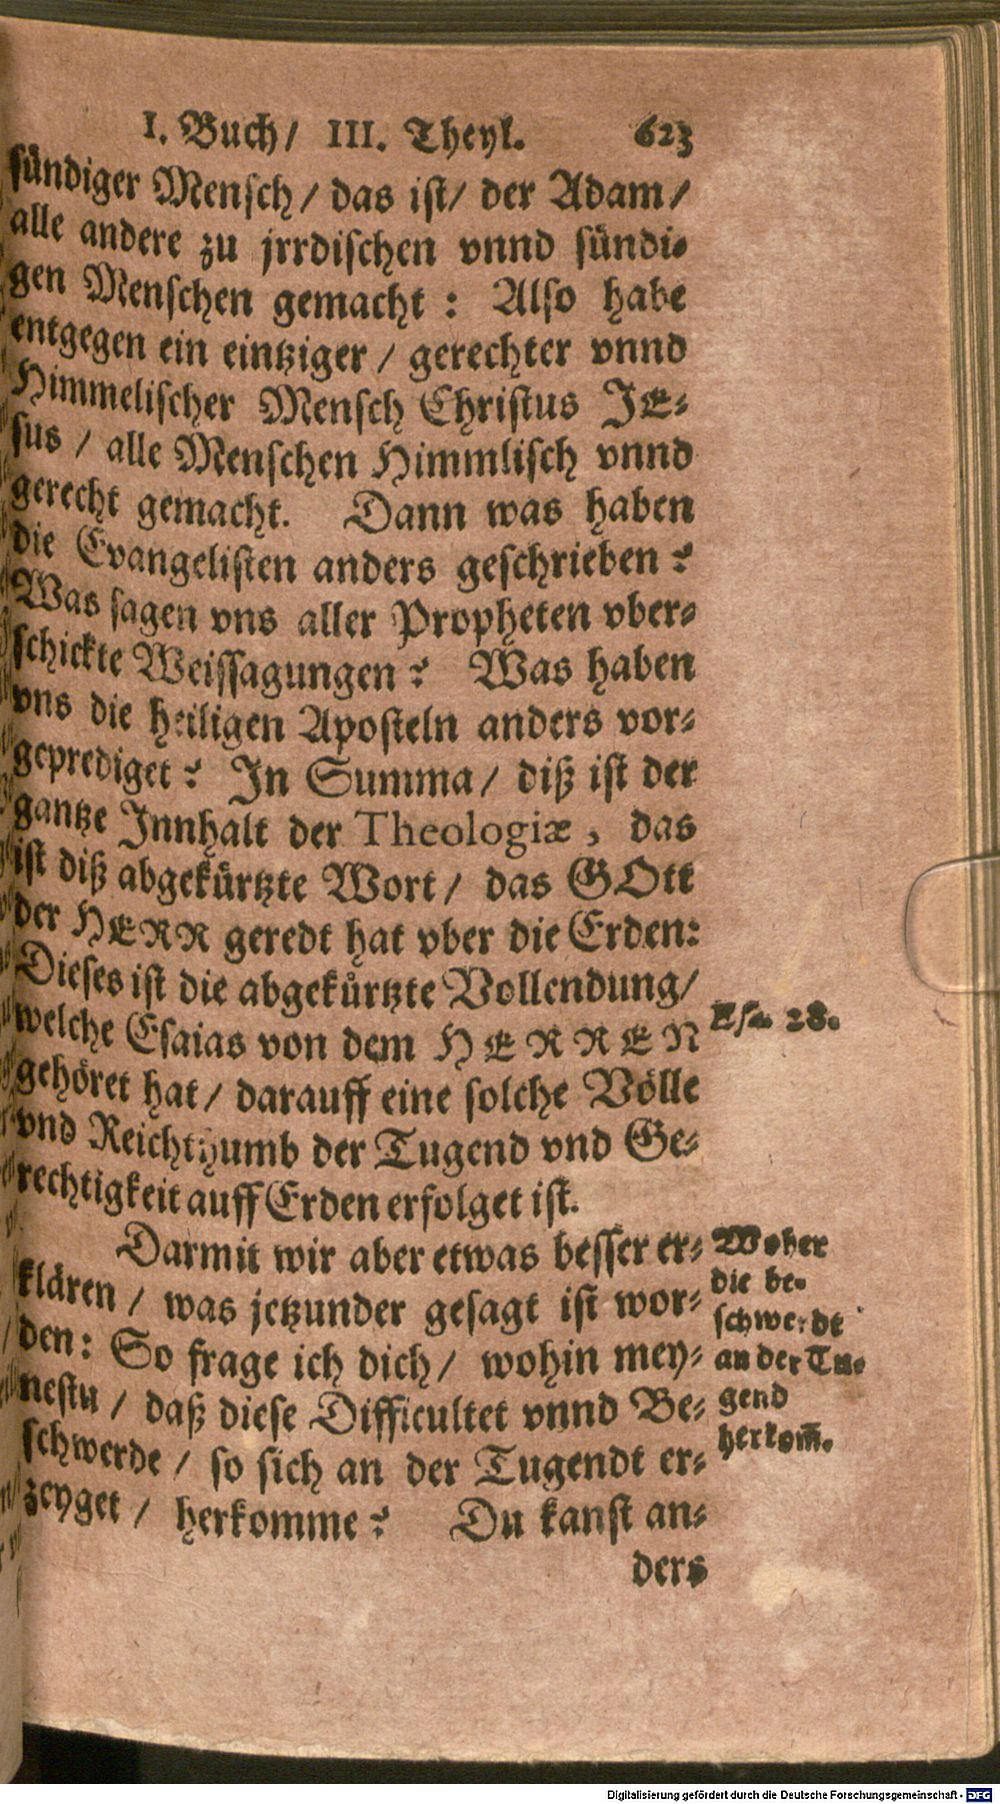 I. Buch/ III. Theyl. 623
sündiger Mensch/ das ist/ der Adam/
alle andere zu jrrdischen vnnd sündi-
gen Menschen gemacht: Also habe
entgegen ein eintziger/ gerechter vnnd
Himmelischer Mensch Christus JE-
sus/ alle Menschen Himmlisch vnnd
gerecht gemacht. Dann was haben
die Evangelisten anders geschrieben?
Was sagen vns aller Propheten vber-
schickte Weissagungen? Was haben
vns die heiligen Aposteln anders vor-
geprediget? In Summa/ diß ist der
gantze Innhalt der Theologiæ, das
ist diß abgekürtzte Wort/ das GOtt
der HERR geredt hat vber die Erden:
Dieses ist die abgekürtzte Vollendung/
welche Esaias von dem HERREN
gehöret hat/ darauff eine solche Völle
vnd Reichthumb der Tugend vnd Ge-
rechtigkeit auff Erden erfolget ist.
Esa. 28.
Darmit wir aber etwas besser er-
klären/ was jetzunder gesagt ist wor-
den: So frage ich dich/ wohin mey-
nestu/ daß diese Difficultet vnnd Be-
schwerde/ so sich an der Tugendt er-
zeyget/ herkomme? Du kanst an-
ders
Woher
die be-
schwerdt
an der Tu-
gend
herkom̃.
Digitalisierung gefördert durch die Deutsche Forschungsgemeinschaft - DFG